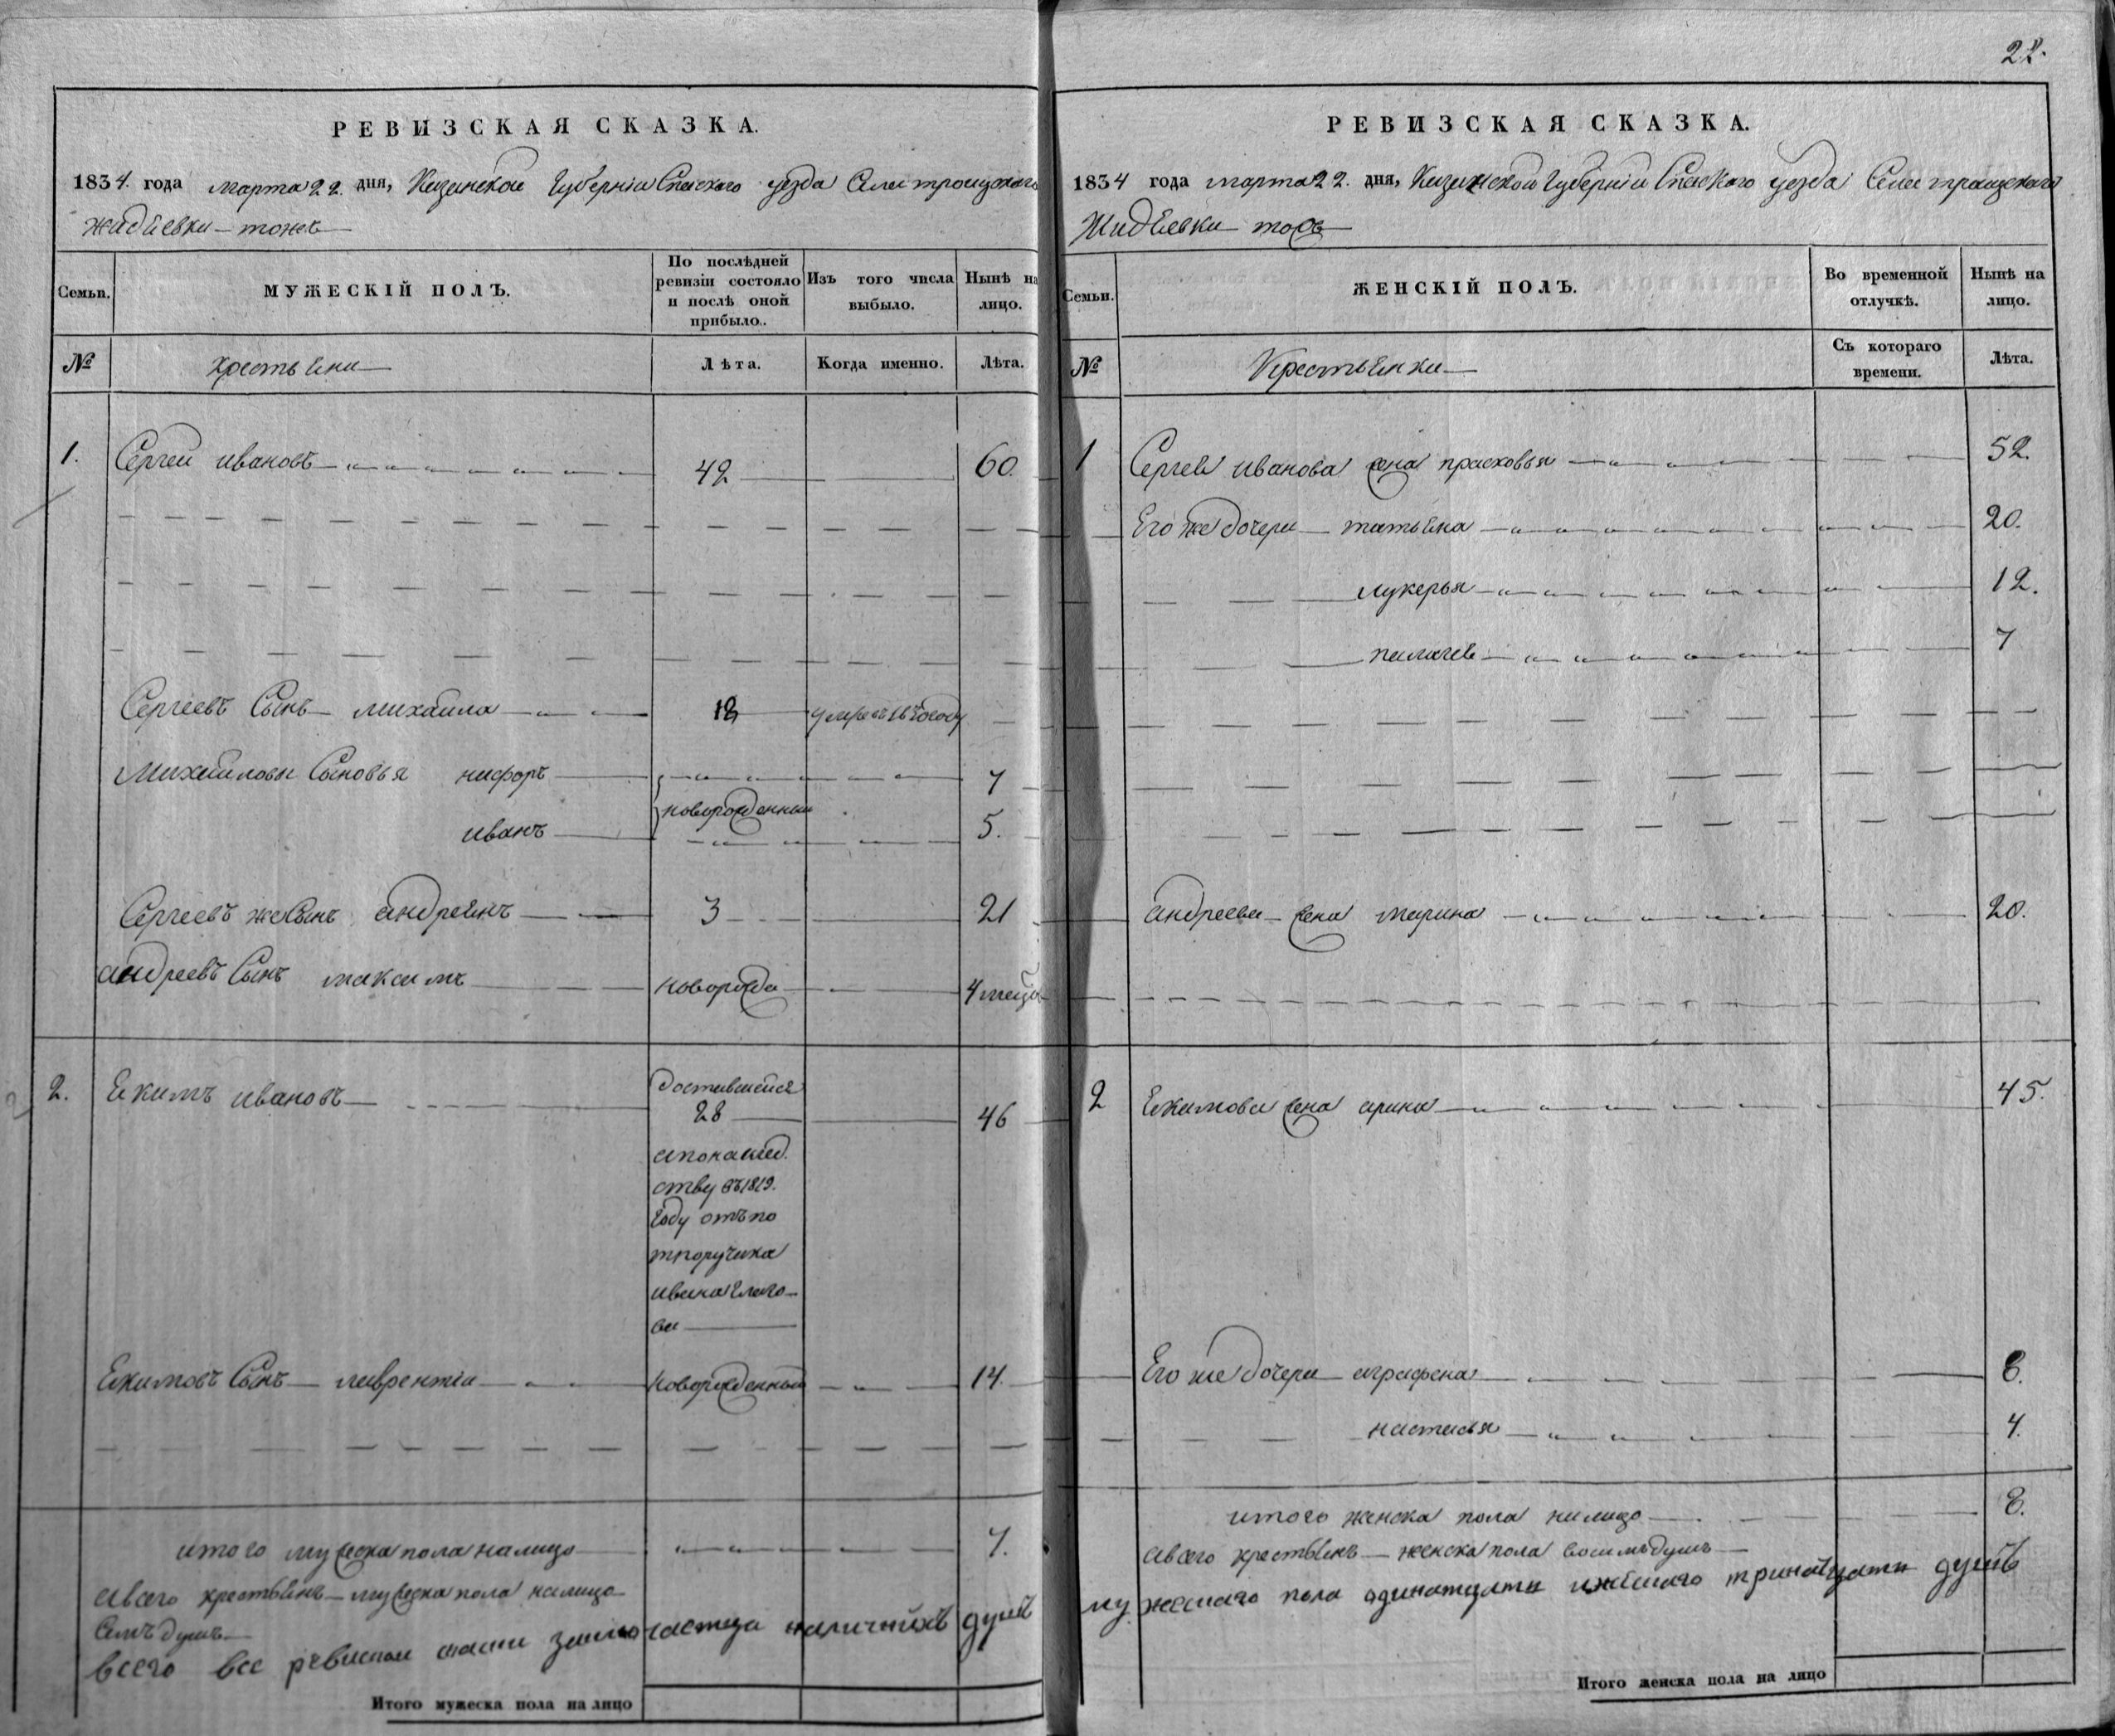 РЕВИЗСКАЯ СКАЗКА.
1834. года марта 22. дня, Казанской Губернiи Спаского уезда Села троицкого
жадЪевки - тожъ
Семьи.
МУЖЕСКІЙ ПОЛЪ.
По послѣдней ревизіи состояло и послѣ оной прибыло.
Изъ того числа выбыло.
Нынѣ на лицо.
№
крестьяне
Лѣта.
Когда именно.
Лѣта.
1. Сергеи ивановъ 42 60.
Сергеевъ Сынъ михаила 18 умеръ
Михаиловы Сыновья 7
новорожденныи
иванъ 5.
Сергеевъ же Сынъ андреянъ 3 21
андреевъ Сынъ максимъ новорожде 4 меця
2. Екимъ ивановъ
доставшейся
28 46
ству въ 1819.
Году отъ по
тпоручика
ивана
ва
Екимовъ Сынъ лаврентiи новорожденныи 14.
итого мужеска пола налицо 7.
авсего крестьянъ - мужеска пола налицо
Семъ душъ
всего наличныхъ душъ
Итого мужеска пола на лицо
22.
РЕВИЗСКАЯ СКАЗКА.
1834 года марта 22. дня, Казанской Губернiи Спаского уезда Села троицкого
ЖидЪевки тожъ
Семьи.
ЖЕНСКІЙ ПОЛЪ.
Во временной отлучкѣ.
Нынѣ на лицо.
№
Крестьянки
Съ котораго времени.
Лѣта.
1 Сергея иванова жена прасковья 52.
Его же дочери татьяна 20.
лукерья 12.
пелагея 7
андреева жена марина 20.
2 Екимова жена арина 45.
Его же дочери аграфена 8.
настасья 4.
итого женска пола налицо 8.
авсего крестьянъ - женска пола восимъ душъ
мужескаго пола одинатцать тринатцать душъ
Итого женска пола на лицо